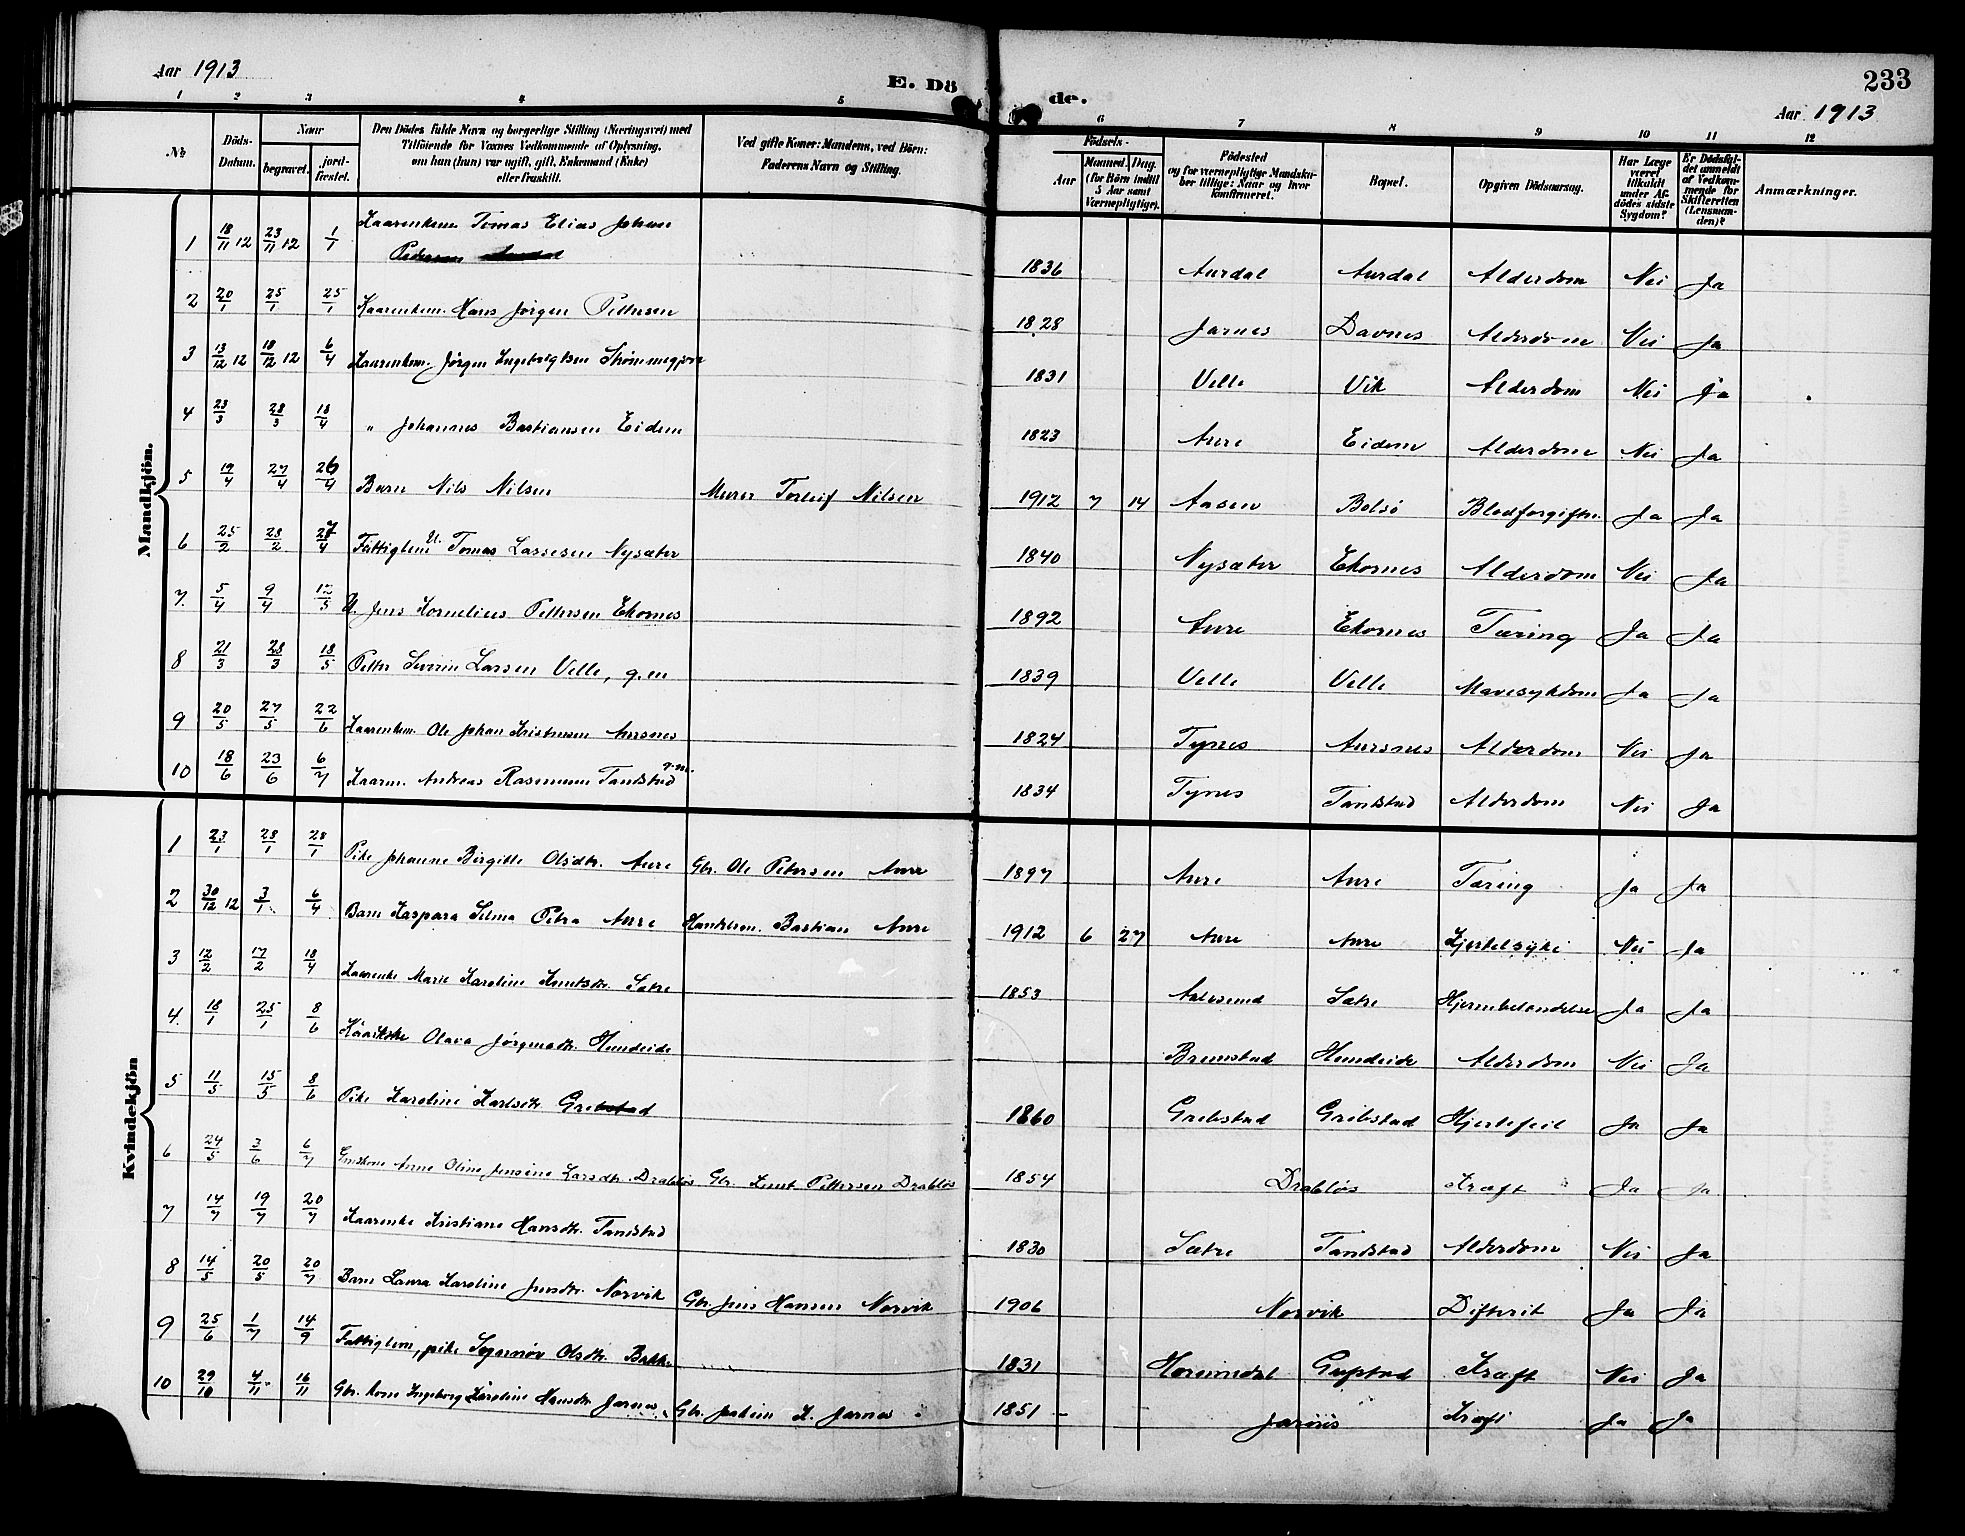 Aar 1913
E. Dö
de.
233
Aar 1913
1 2 3 4 5 6 7 8 9 10 11 12
No
Döds-Datum.
Naar
begravet.
jord-fæstet.
Den Dödes fulde Navn og borgerlige Stilling (Næringsvei) med
Tilföiende for Voxnes Vedkommende af Oplysning,
om han (hun) var ugift, gift, Enkemand (Enke)
eller fraskilt.
Ved gifte Koner: Mandens, ved Börn:
Faderens Navn og Stilling.
Födsels-
Aar
Maaned. Dag.
(for Börn indtil
5 Aar samt
Værnepligtige).
Födested
og for værnepligtige Mandska-
ber tillige: Naar og hvor
konfirmeret.
Bopæl.
Opgiven Dödsaarsag.
Har Læge
været
tilkaldt
under Af-
dödes sidste
Sygdom?
Er Dödsfal-
det anmeldt
af Vedkom-
mende for
Skifteretten
(Lensman-
den)?
Anmærkninger.
Mandkjön.
1 18/11 12 23/11 12 1/1 Kaarenkem. Tomas Elias Johan
Pedersen 1836 Aurdal Aurdal Alderdom Nei Ja
2 20/1 25/1 25/1 Kaarenkem. Hans Jørgen Pettersen 1828 Jarnes Davnes Alderdom Nei Ja
3 13/12 12 18/12 12 6/4 Kaarenkem. Jørgen Ingebrigtsen 1831 Velle Vik Alderdom Nei Ja
4 23/3 28/3 18/4 " Johannes Bastiansen Eidem 1823 Aure Eidem Alderdom Nei Ja
5 19/4 27/4 26/4 Barn Nils Nilsen Murer Torleif Nilsen 1912 7 14 Aasen Bolsø Blodforgiftn. Ja Ja
6 25/2 28/2 27/4 Fattiglem U. Tomas Lassesen Nysæter 1840 Nysæter Ekornes Alderdom Nei Ja
7. 5/4 9/4 12/5 U. Jens Kornelius Pettersen Ekornes 1892 Aure Ekornes Tæring Ja Ja
8 21/3 28/3 18/5 Petter Severin Larsen Velle, g.m 1839 Velle Velle Mavesykdom Ja Ja
9 20/5 27/5 22/6 Kaarenkem. Ole Johan Kristensen Aursnes 1824 Tynes Aursnes Alderdom Nei Ja
10 18/6 23/6 6/7 Kaarm. Andreas Rasmusen Tandstad g.m. 1834 Tynes Tandstad Alderdom Nei Ja
Kvindekjön
1 23/1 28/1 28/1 Pike Johanne Birgitte Olsdtr. Aure Gbr. Ole Petersen Aure 1897 Aure Aure Tæring Ja Ja
2 30/12 12 3/1 6/4 Barn Kaspara Selma Petra Aure Handelsm. Bastian Aure 1912 6 27 Aure Aure Kjertelsyke Nei Ja
3 12/2 17/2 18/4 Kaarenke Marie Karoline Knutsdtr. Sætre 1853 Aalesund Sætre Hjernebetændelse Ja Ja
4. 18/1 25/1 8/6 Olava Jørgensdtr. Hundeide Brunstad Hundeide Alderdom Nei Ja
5 11/5 15/5 8/6 Pike Karoline Karlsdtr. Grebstad 1860 Grebstad Grebstad Hjertefeil Ja Ja
6 24/5 3/6 6/7 Anne Oline Jensine Larsdtr. Drabløs Gbr. Knut Pettersen Drabløs 1854 Drabløs Kræft Ja Ja
7 14/7 19/7 20/7 Kaarenke Kristiane Hansdtr. Tandstad 1830 Sætre Tandstad Alderdom Nei Ja
8 14/5 20/5 20/7 Barn Laura Karoline Jensdtr. Norvik Gbr. Jens Hansen Norvik 1906 Norvik Difterit Ja Ja
9 25/6 1/7 14/9 Fattiglem, pike Olsdtr. Bakke 1831 Hornindal Kræft Nei Ja
10 29/10 4/11 16/11 Gbr. kone Ingeborg Karoline Hansdtr. Jarnes Gbr. Joakim K. Jarnes 1851 Jarnes Kræft Ja Ja